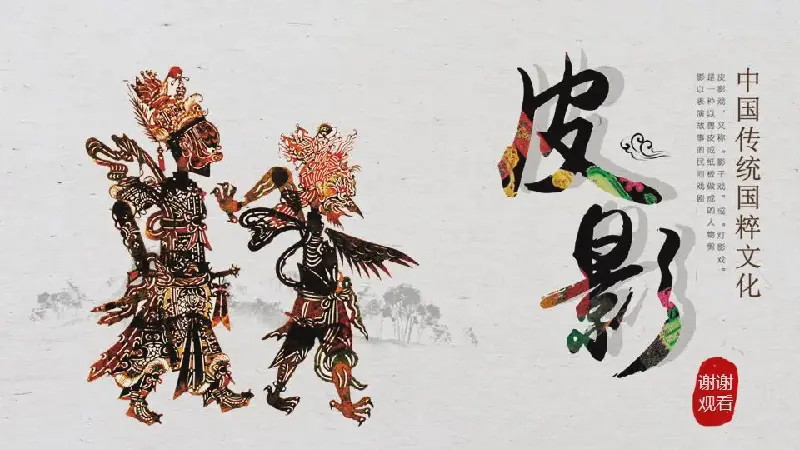 中国传统国粹文化
皮影戏，又称“影子戏”或“灯影戏”
是一种以兽皮或纸板做成的人物剪
影以表演故事的民间戏剧
皮影
谢谢
观看